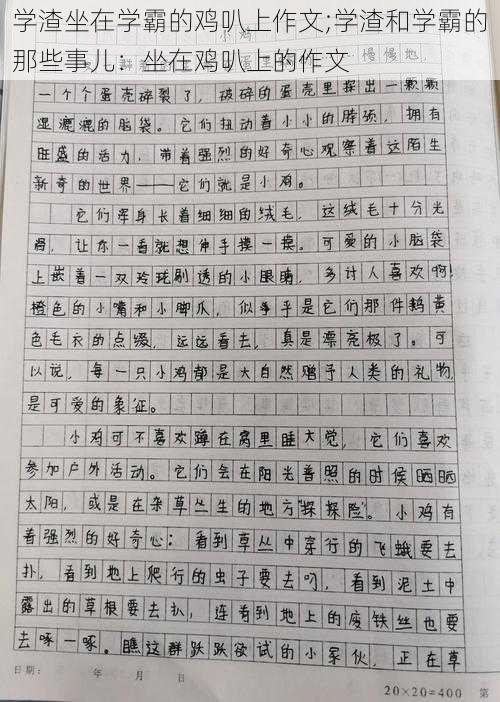 学渣坐在学霸的鸡叭上作文;学渣和学霸的
那些事儿：坐在鸡叭上的作文
小鸡
慢慢地，
一个个蛋壳碎裂了，破碎的蛋壳里探出一颗颗
湿漉漉的脑袋。它们扭动着小小的脖颈，拥有
旺盛的活力，带着强烈的好奇心观察着这陌生
新奇的世界——它们就是小鸡。
它们浑身长着细细的绒毛，这绒毛十分光
滑，让你一看就想伸手摸一摸。可爱的小脑袋
上嵌着一双玲珑剔透的小眼睛，多讨人喜欢啊！
橙色的小嘴和小脚爪，似乎是它们那件鹅黄
色毛衣的点缀，远远看去，真是漂亮极了。可
以说，每一只小鸡都是大自然赠予人类的礼物，
是可爱的象征。
小鸡可不喜欢蹲在窝里睡大觉，它们喜欢
参加户外活动。它们会在阳光普照的时候晒晒
太阳，或是在杂草丛生的地方“探探险”。小鸡有
着强烈的好奇心：看到草丛中穿行的飞蛾要去
扑，看到地上爬行的虫子要去叼，看到泥土中
露出的草根要去扒，连看到地上的废铁丝也要
去啄一啄。瞧这群跃跃欲试的小家伙，正在草
日期： 年 月 日
20×20=400 第